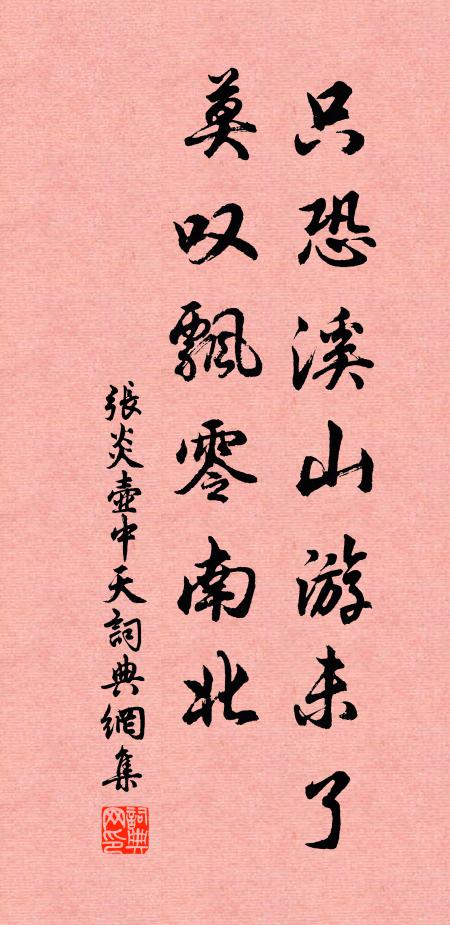 只恐溪山游未了
莫叹飄零南北
張炎壺中天詞典網集
詞典网印